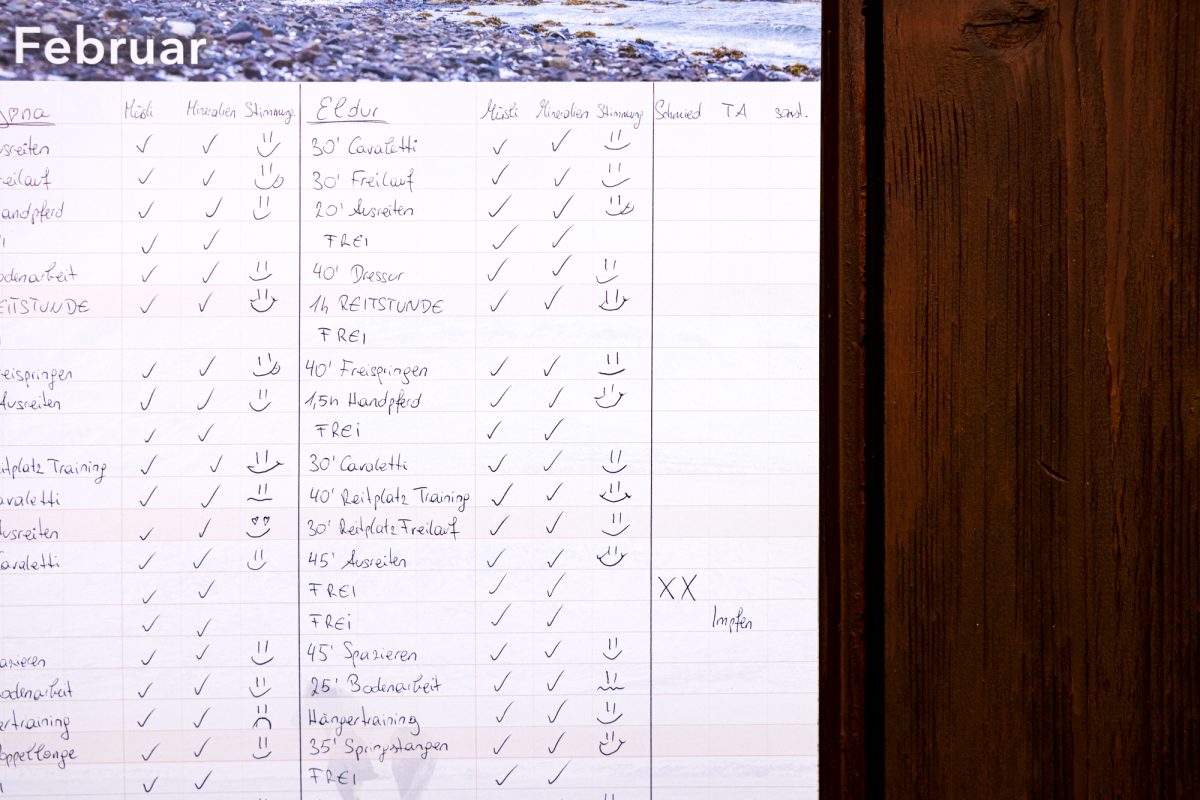 Februar
Müsli Mineralien Stimmung Eldur Müsli Mineralien Stimmung Schmied TA sonst.
30' Cavaletti
30' Freilauf
20' Ausreiten
FREI
40' Dressur
EITSTUNDE 1h REITSTUNDE
FREI
eispringen 40' Freispringen
Ausreiten 1,5h Handpferd
FREi
itplatz Training 30' Cavaletti
avaletti 40' Reitplatz Training
Ausreiten 30' Reitplatz Freilauf
Cavaletti 45' Ausreiten
FREI XX
FREi Impfen
azieren 45' Spazieren
odenarbeit 25' Bodenarbeit
ertraining Hängertraining
oppellonge 35' Springstangen
FREI